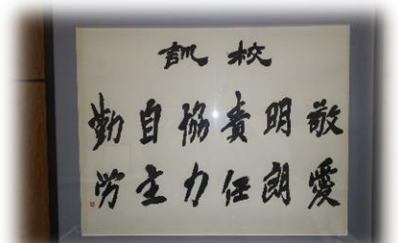 校訓
敬愛
明朗
責任
協力
自主
勤労